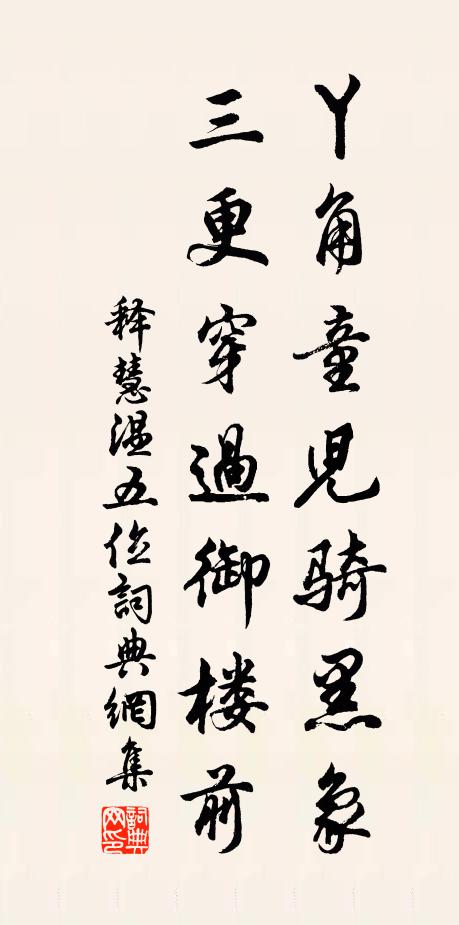 丫角童児騎黑象
三更穿過御楼前
释慧温五位詞典網集
詞典網印